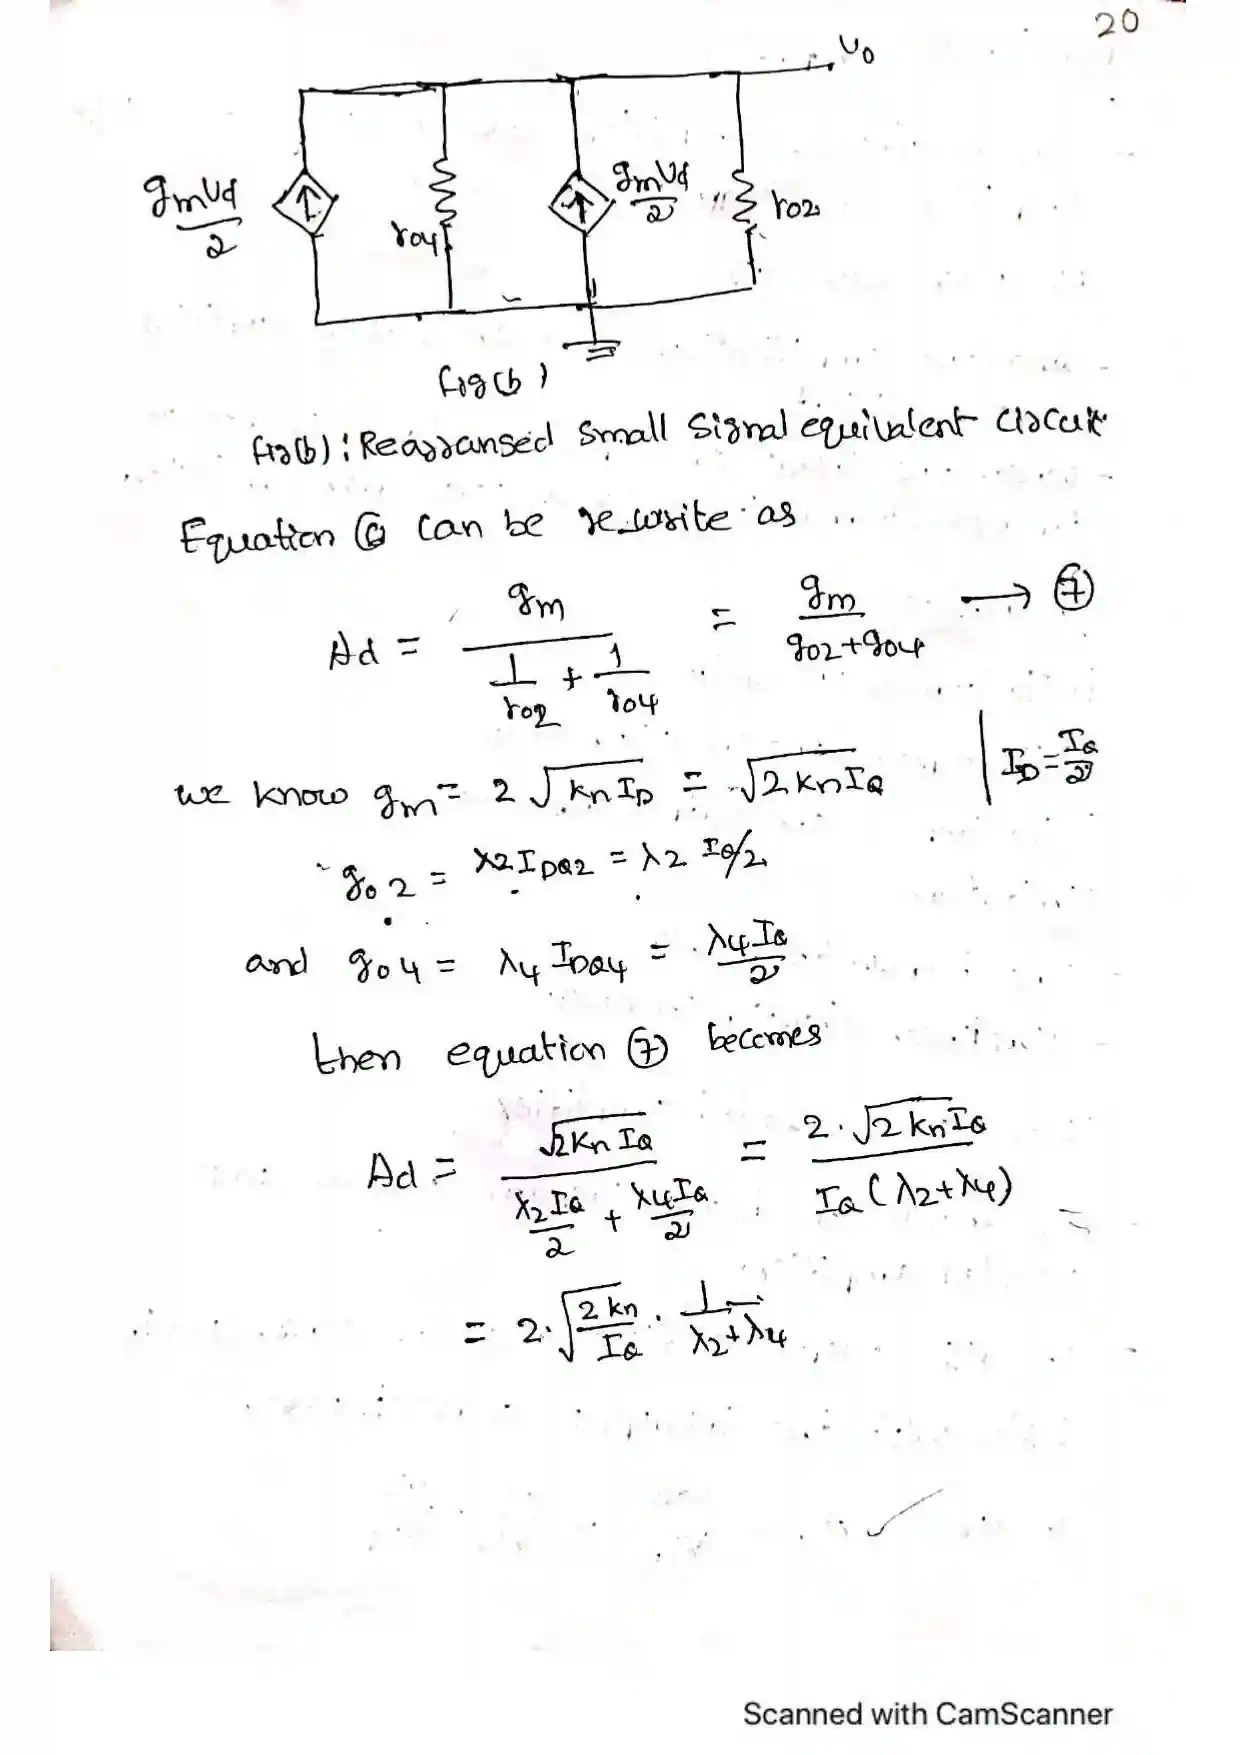 20
υo
gmυd/2
ro4
gmυd/2
ro2
fig(b)
fig(b): Rearranged small signal equivalent circuit
Equation ⑥ can be rewrite as
Ad = gm/(1/ro2 + 1/ro4) = gm/(go2+go4) → ⑦
we know gm = 2√(kn ID) = √(2knIQ) | ID = IQ/2
go2 = λ2 IDQ2 = λ2 IQ/2
and go4 = λ4 IDQ4 = λ4IQ/2
then equation ⑦ becomes
Ad = √(2kn IQ)/(λ2IQ/2 + λ4IQ/2) = 2.√(2knIQ)/(IQ(λ2+λ4))
= 2.√(2kn/IQ) . 1/(λ2+λ4)
Scanned with CamScanner